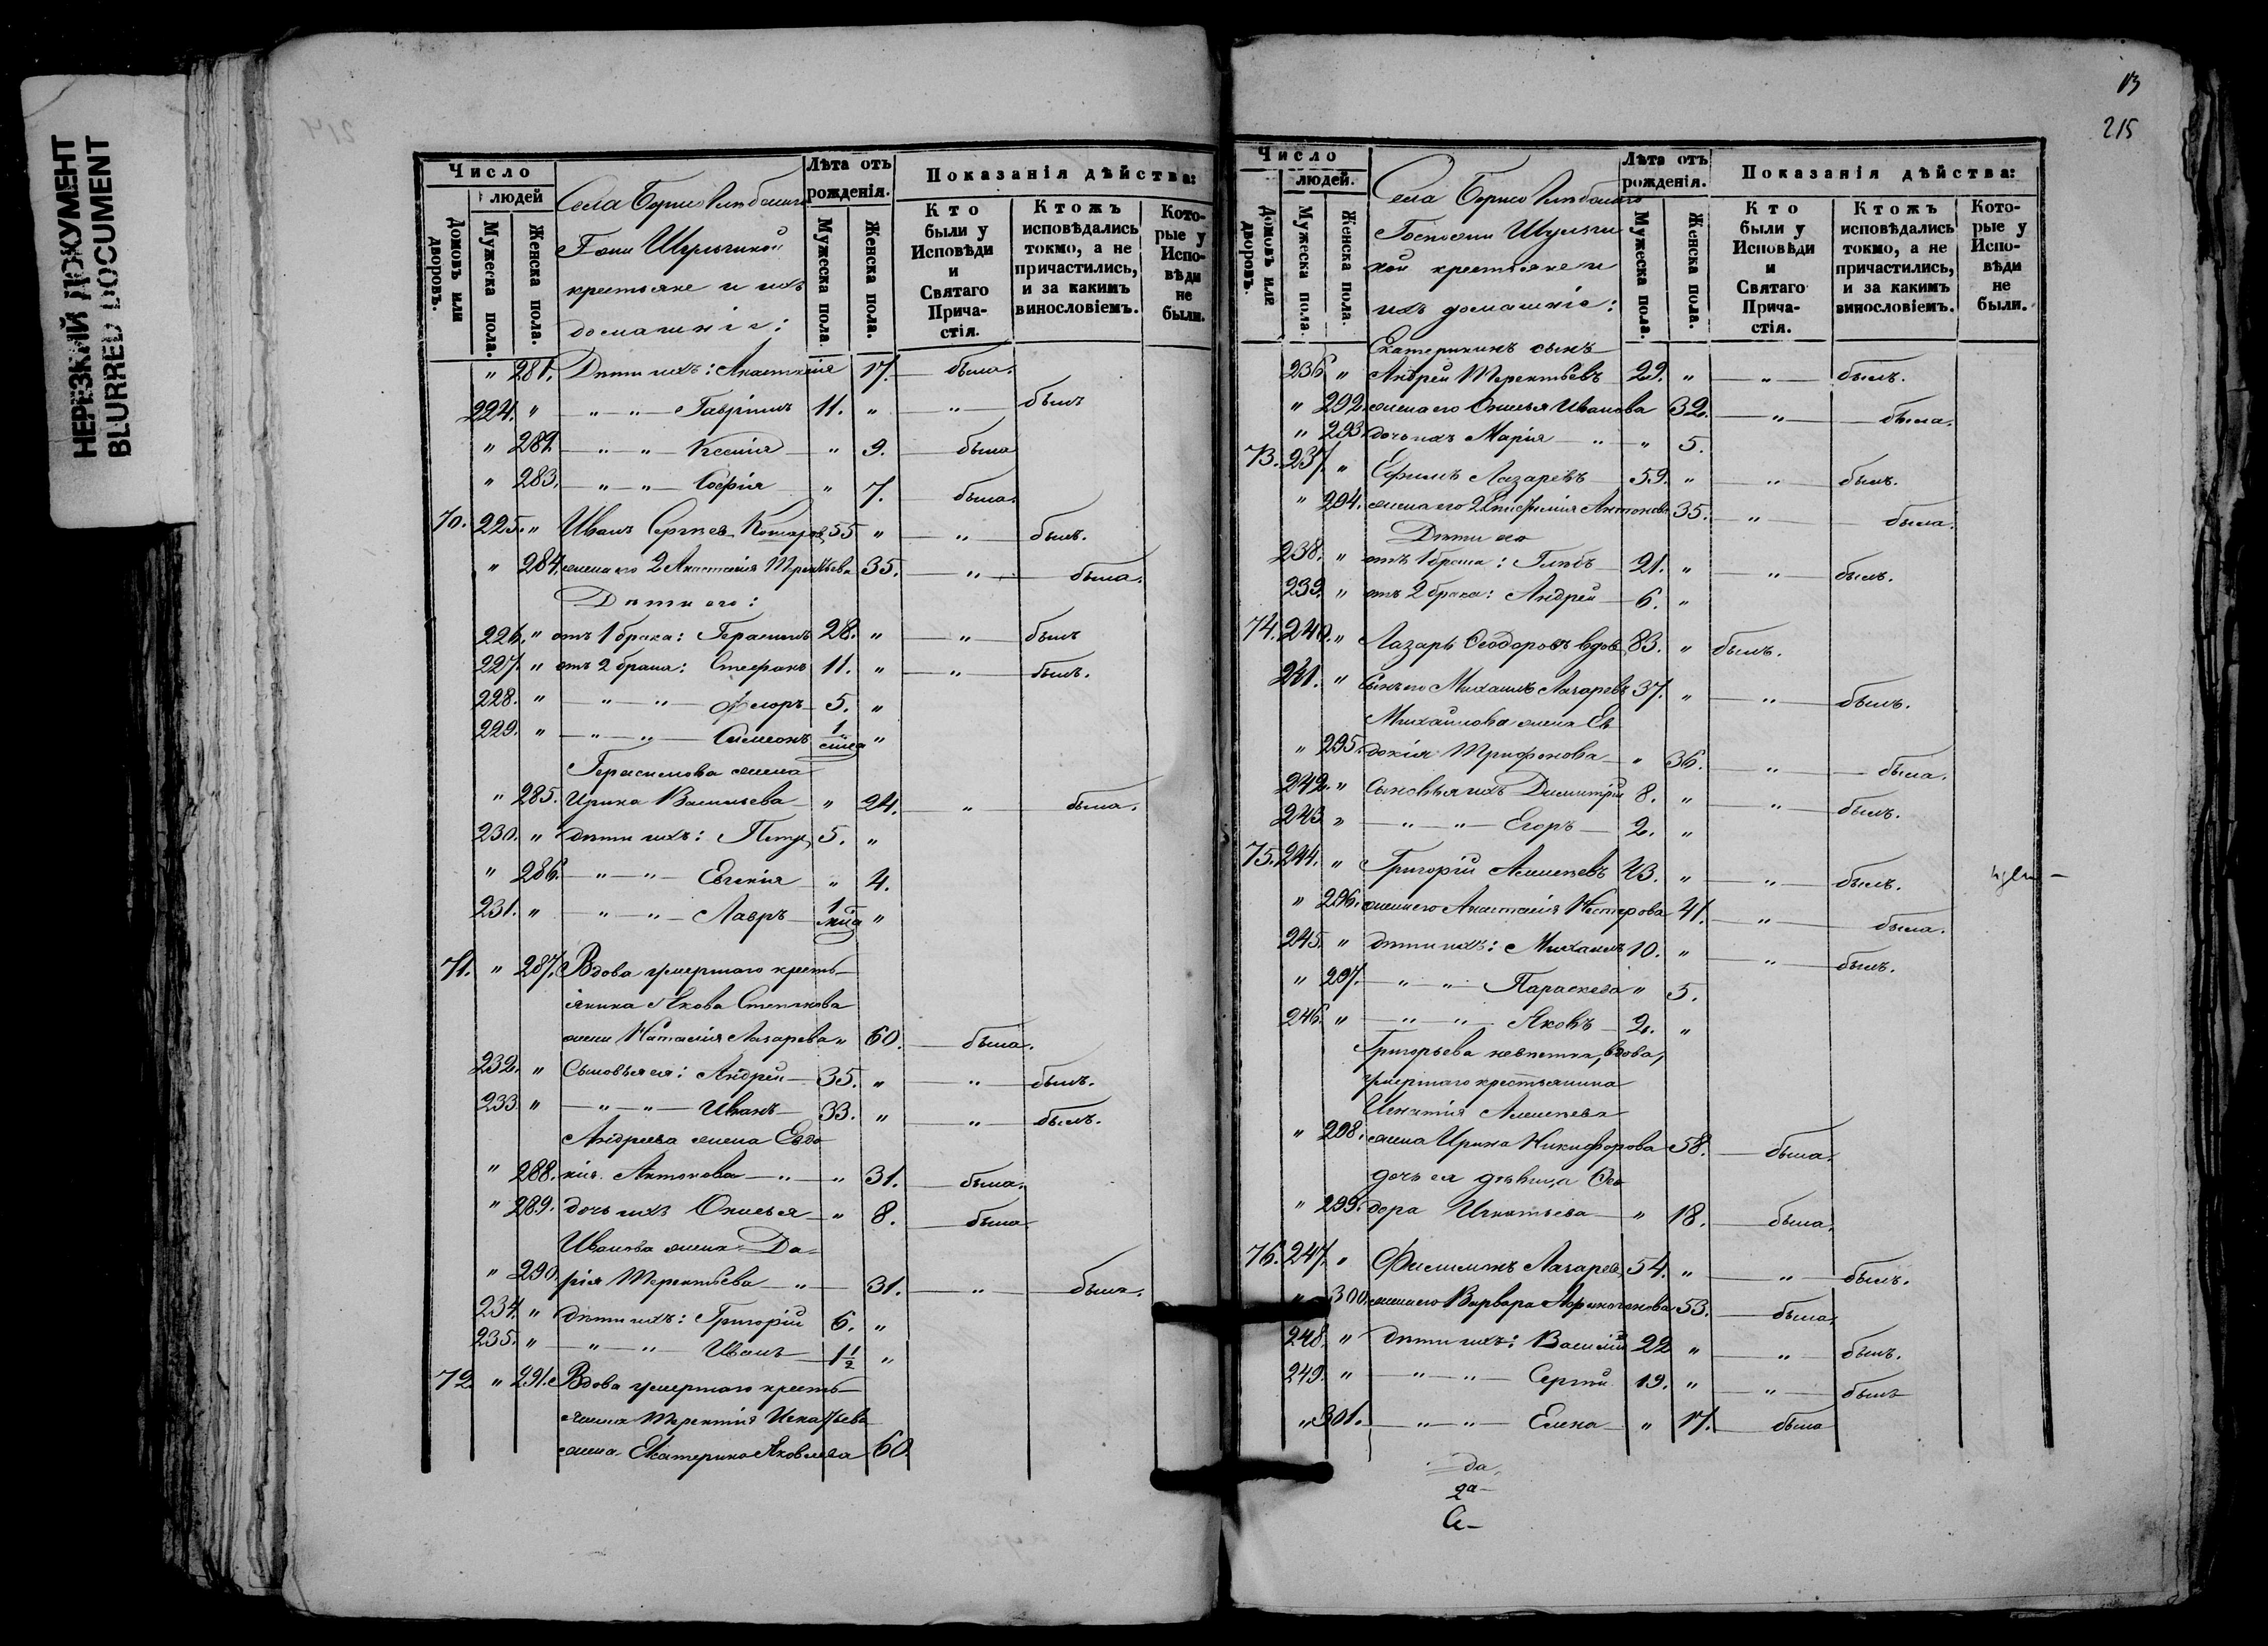 НЕРЕЗКИЙ ДОКУМЕНТ
BLURRED DOCUMENT
Число
людей
Домовъ или дворовъ.
Мужеска пола.
Женска пола.
Села Борисоглѣбскаго
Гжи Шульгиной
крестьяне и ихъ
домашніе:
Лѣта отъ рожденія.
Мужеска пола.
Женска пола.
Показанія дѣйства:
Кто были у Исповѣди и Святаго Прича- стія.
Ктожъ исповѣдались токмо, а не причастились, и за какимъ винословіемъ.
Кото- рые у Испо- вѣди не были.
" 281. Дѣти ихъ: Анастасія 17. была.
224. " " " Гавріилъ 11. " " былъ
" 282 " " Ксенія " 9. была
" 283. " " Софія " 7. была.
70. 225. " Иванъ Сергѣевъ 55 " " былъ.
" 284. жена его 2 Анастасія Терентьева 35. " была.
Дѣти его:
226. " отъ 1 брака: Герасимъ 28. " " былъ
227. " отъ 2 брака: Стефанъ 11. " " былъ.
228. " " " Флоръ 5. "
229. " " " Симеонъ 1 "
Герасимова жена
" 285. Ирина Васильева " 24. " была.
230. " дѣти ихъ: Петръ 5. "
" 286. " " Евгенія " 4.
231. " " " Лавръ 1 "
71. " 287. Вдова умершаго кресть-
янина Якова Степанова
жена Наталія Лазарева " 60. была.
232. " Сыновья ея: Андрей 35. " " былъ.
233. " " " Иванъ 33. " " былъ.
Андреева жена Евдо
" 288. кія Антонова " " 31. была.
" 289. дочь ихъ Анисья " 8. была
Иванова жена Да-
" 290. рія Терентьева " 31. " была.
234. " дѣти ихъ: Григорій 6. "
235. " " " Иванъ 1½ "
72 " 291. Вдова умершаго кресть-
янина Терентія Игнатьева
жена Екатерина Яковлева 60.
13
215
Число
людей.
Домовъ или дворовъ.
Мужеска пола.
Женска пола.
Села Борисоглѣбскаго
Госпожи Шульги
ной крестьяне и
ихъ домашніе:
Лѣта отъ рожденія.
Мужеска пола.
Женска пола.
Показанія дѣйства:
Кто были у Исповѣди и Святаго Прича- стія.
Ктожъ исповѣдались токмо, а не причастились, и за какимъ винословіемъ.
Кото- рые у Испо- вѣди не были.
Екатерининъ сынъ
236 " Андрей Терентьевъ 29. " " былъ.
" 292. жена его Анисья Иванова 32. " была.
" 293. дочь ихъ Марія " " 5.
73. 237. " Ефимъ Лазаревъ 59. " " былъ.
" 294. жена его 2 Антонова 35. " была.
Дѣти его
238. " отъ 1 брака: Глѣбъ 21. " " былъ.
239. " отъ 2 брака: Андрей 6. "
74. 240. " Лазарь Ѳеодоровъ вдов 83. " былъ.
241. " Сынъ его Михаилъ Лазаревъ 37. " " былъ.
Михайлова жена Ев
" 295. докія Трифонова " 36. " была.
242. " Сыновья ихъ Димитрій 8. " " былъ.
243 " " " Егоръ 2. "
75. 244. " Григорій Алексѣевъ 43. " " былъ.
" 296. жена его Анастасія Нестерова 41. " была.
245. " дѣти ихъ: Михаилъ 10. " " былъ.
" 297. " " Параскева " 5.
246. " " " Яковъ 2. "
Григорьева невѣстка, вдова,
умершаго крестьянина
Игнатія Алексѣева
" 298. жена Ирина Никифорова 58. была.
дочь ея дѣвица Ѳео
" 299. дора Игнатьева " 18. была.
76. 247. " Филимонъ Лазаревъ 54. " " былъ.
" 300. жена его Варвара Афиногенова 53. была.
248. " дѣти ихъ: Василій 22 " " былъ.
249. " " " Сергій 19. " " былъ
" 301. " " Елена " 17. была
да.
2а